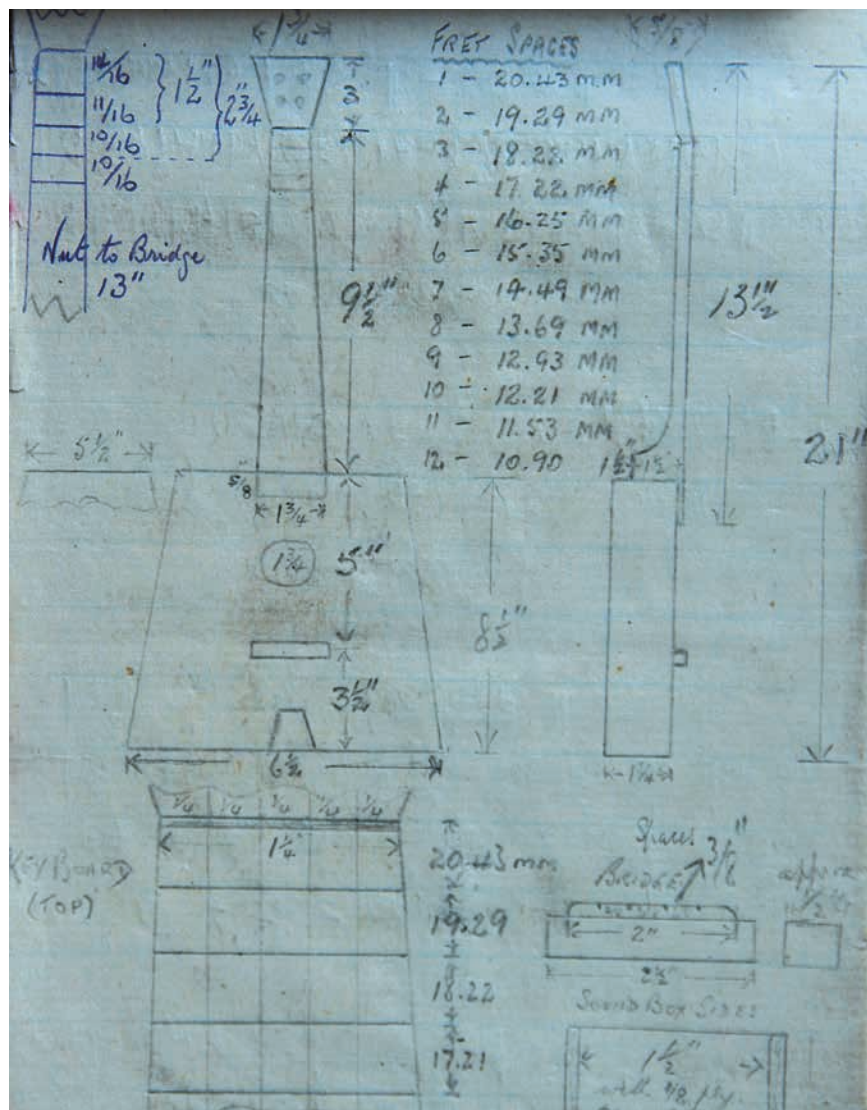 14/16
11/16
10/16
10/16
1 1/2"
2 3/4"
Nut to Bridge
13"
1 3/4"
3"
9 1/2"
FRET SPACES
1 - 20.43 MM
2 - 19.29 MM
3 - 18.22 MM
4 - 17.22 MM
5 - 16.25 MM
6 - 15.35 MM
7 - 14.49 MM
8 - 13.69 MM
9 - 12.93 MM
10 - 12.21 MM
11 - 11.53 MM
12 - 10.90
5/8"
13 1/2"
21"
1 1/2"
5 1/2"
5/8"
1 3/4"
1 3/4
5"
3 1/2"
8 1/2"
6 1/2
1 1/4
1/4 1/4 1/4 1/4 1/4
1 1/4"
KEYBOARD
(TOP)
20.43 mm
19.29
18.22
17.21
Spaces 3/8"
BRIDGE
approx
1/2"
2"
2 1/2"
SOUND BOX SIDES
1 1/2"
ply.